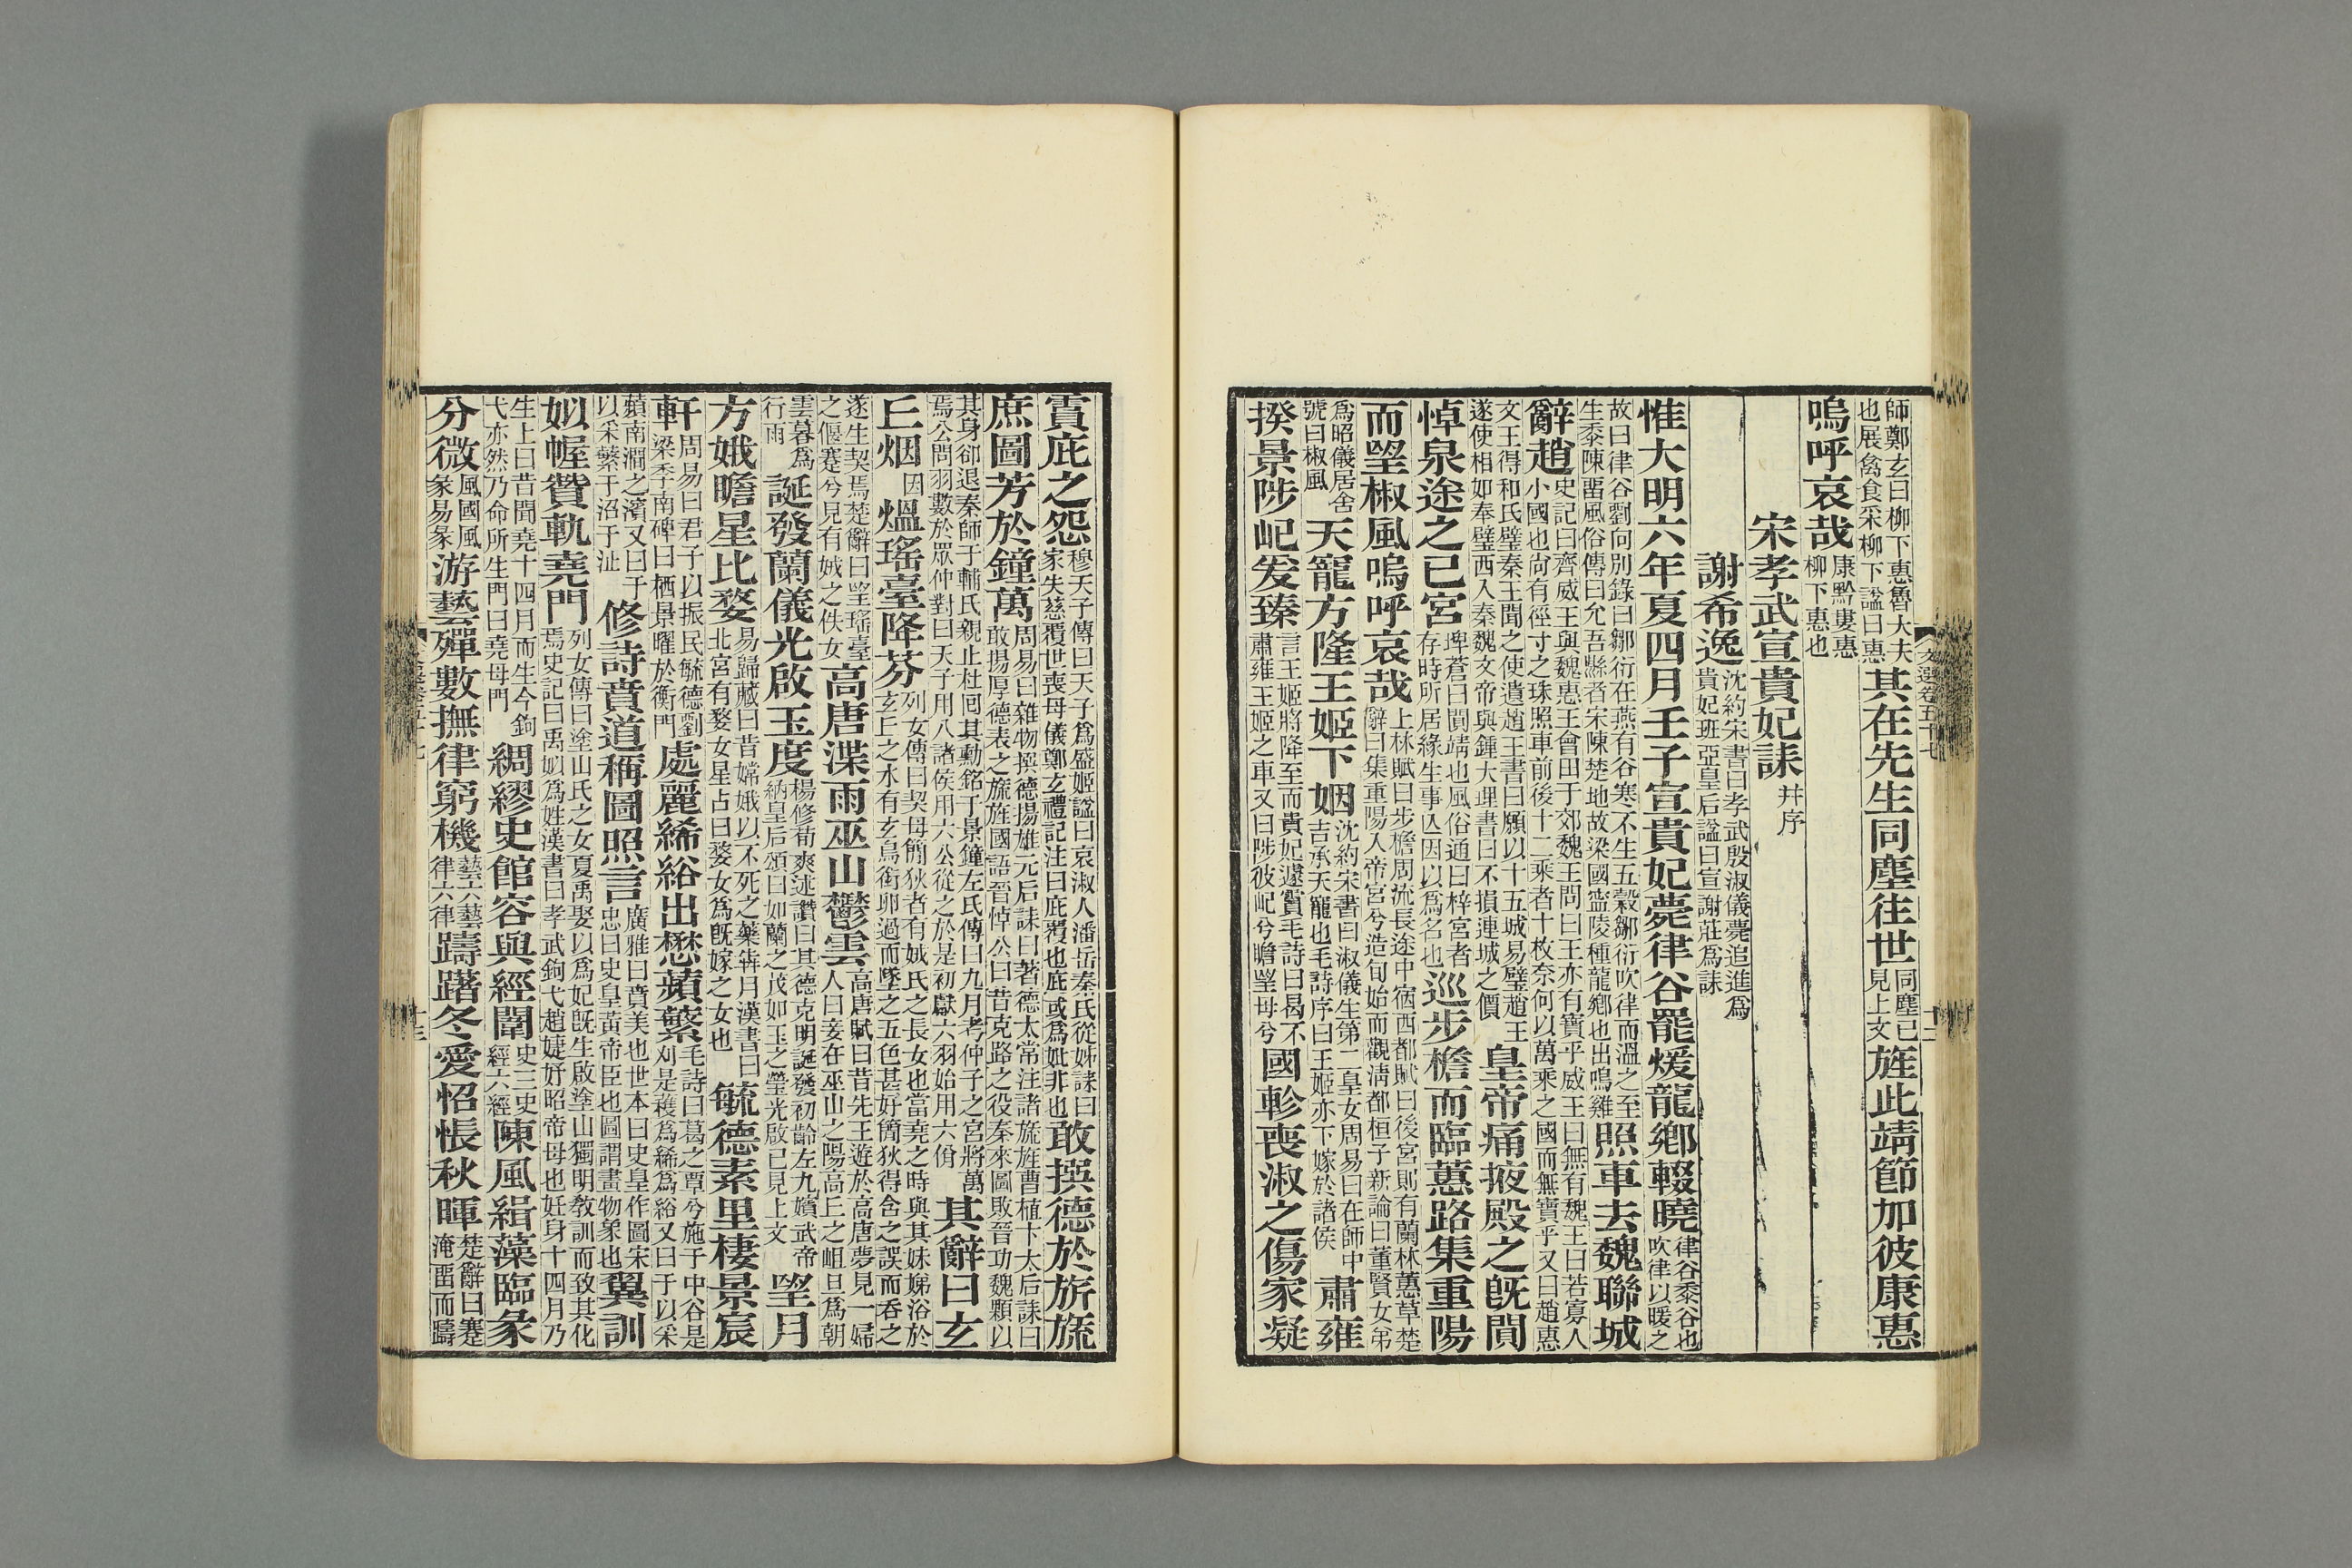 師鄭玄曰柳下惠魯大夫也展禽食采柳下謚曰惠其在先生同塵往世同塵已見上文旌此靖節加彼康惠
嗚呼哀哉康黔婁惠柳下惠也
宋孝武宣貴妃誄并序
謝希逸沈約宋書曰孝武殷淑儀薨追進爲貴妃班亞皇后謚曰宣謝莊爲誄
惟大明六年夏四月壬子宣貴妃薨律谷罷煖龍鄉輟曉律谷黍谷也吹律以暖之
故曰律谷劉向別錄曰鄒衍在燕有谷寒不生五穀鄒衍吹律而溫之至生黍陳留風俗傳曰允吾縣者宋陳楚地故梁國寍陵種龍鄉也出鳴雞照車去魏聯城
辭趙史記曰齊威王與魏惠王會田于郊魏王問曰王亦有寶乎威王曰無有魏王曰若寡人小國也尙有徑寸之珠照車前後十二乘者十枚奈何以萬乘之國而無寶乎又曰趙惠
文王得和氏璧秦王聞之使遺趙王書曰願以十五城易璧趙王遂使相如奉璧西入秦魏文帝與鍾大理書曰不損連城之價皇帝痛掖殿之旣闃
悼泉途之已宮埤蒼曰闃靖也風俗通曰梓宮者存時所居緣生事亡因以爲名也巡步檐而臨蕙路集重陽
而望椒風嗚呼哀哉上林賦曰步櫩周流長途中宿西都賦曰後宮則有蘭林蕙草楚辭曰集重陽入帝宮兮造旬始而觀淸都桓子新論曰董賢女弟
爲昭儀居舍號曰椒風天寵方隆王姬下姻沈約宋書曰淑儀生第二皇女周易曰在師中吉承天寵也毛詩序曰王姬亦下嫁於諸侯肅雍
揆景陟屺爰臻言王姬將降至而貴妃遽賞毛詩曰曷不肅雍王姬之車又曰陟彼屺兮瞻望母兮國軫喪淑之傷家凝
霣庇之怨穆天子傳曰天子爲盛姬謚曰哀淑人潘岳秦氏從姊誄曰家失慈覆世喪母儀鄭玄禮記注曰庇覆也庇或爲妣非也敢撰德於旂旒
庶圖芳於鐘萬周易曰雜物撰德揚雄元后誄曰著德太常注諸旒旌曹植卞太后誄曰敢揚厚德表之旒旌國語晉悼公曰昔克路之役秦來圖敗晉功魏顆以
其身卻退秦師于輔氏親止杜回其勳銘于景鐘左氏傳曰九月考仲子之宮將萬焉公問羽數於眾仲對曰天子用八諸侯用六公從之於是初獻六羽始用六佾其辭曰玄
丘烟因熅瑤臺降芬列女傳曰契母簡狄者有娀氏之長女也當堯之時與其妹娣浴於玄丘之水有玄鳥銜卵過而墜之五色甚好簡狄得含之誤而吞之
遂生契焉楚辭曰望瑤臺之偃蹇兮見有娀之佚女高唐渫雨巫山鬱雲高唐賦曰昔先王遊於高唐夢見一婦人曰妾在巫山之陽高丘之岨旦爲朝
雲暮爲行雨誕發蘭儀光啟玉度楊修荀爽述讚曰其德克明誕發初齡左九嬪武帝納皇后頌曰如蘭之茂如玉之瑩光啟已見上文望月
方娥瞻星比婺易歸藏曰昔嫦娥以不死之藥犇月漢書曰北宮有婺女星占曰婺女爲旣嫁之女也毓德素里棲景宸
軒周易曰君子以振民毓德劉梁季南碑曰栖景曜於衡門處麗絺綌出懋蘋蘩毛詩曰葛之覃兮施于中谷是刈是穫爲絺爲綌又曰于以采
蘋南澗之濱又曰于以采蘩于沼于沚修詩賁道稱圖照言廣雅曰賁美也世本曰史皇作圖宋忠曰史皇黃帝臣也圖謂畫物象也翼訓
姒幄贊軌堯門列女傳曰塗山氏之女夏禹娶以爲妃旣生啟塗山獨明教訓而致其化焉史記曰禹姒爲姓漢書曰孝武鉤弋趙婕妤昭帝母也妊身十四月乃
生上曰昔聞堯十四月而生今鉤弋亦然乃命所生門曰堯母門綢繆史館容與經闈史三史經六經陳風緝藻臨彖
分微風國風彖易彖游藝殫數撫律窮機藝六藝律六律躊躇冬愛怊悵秋暉楚辭曰蹇淹留而躊